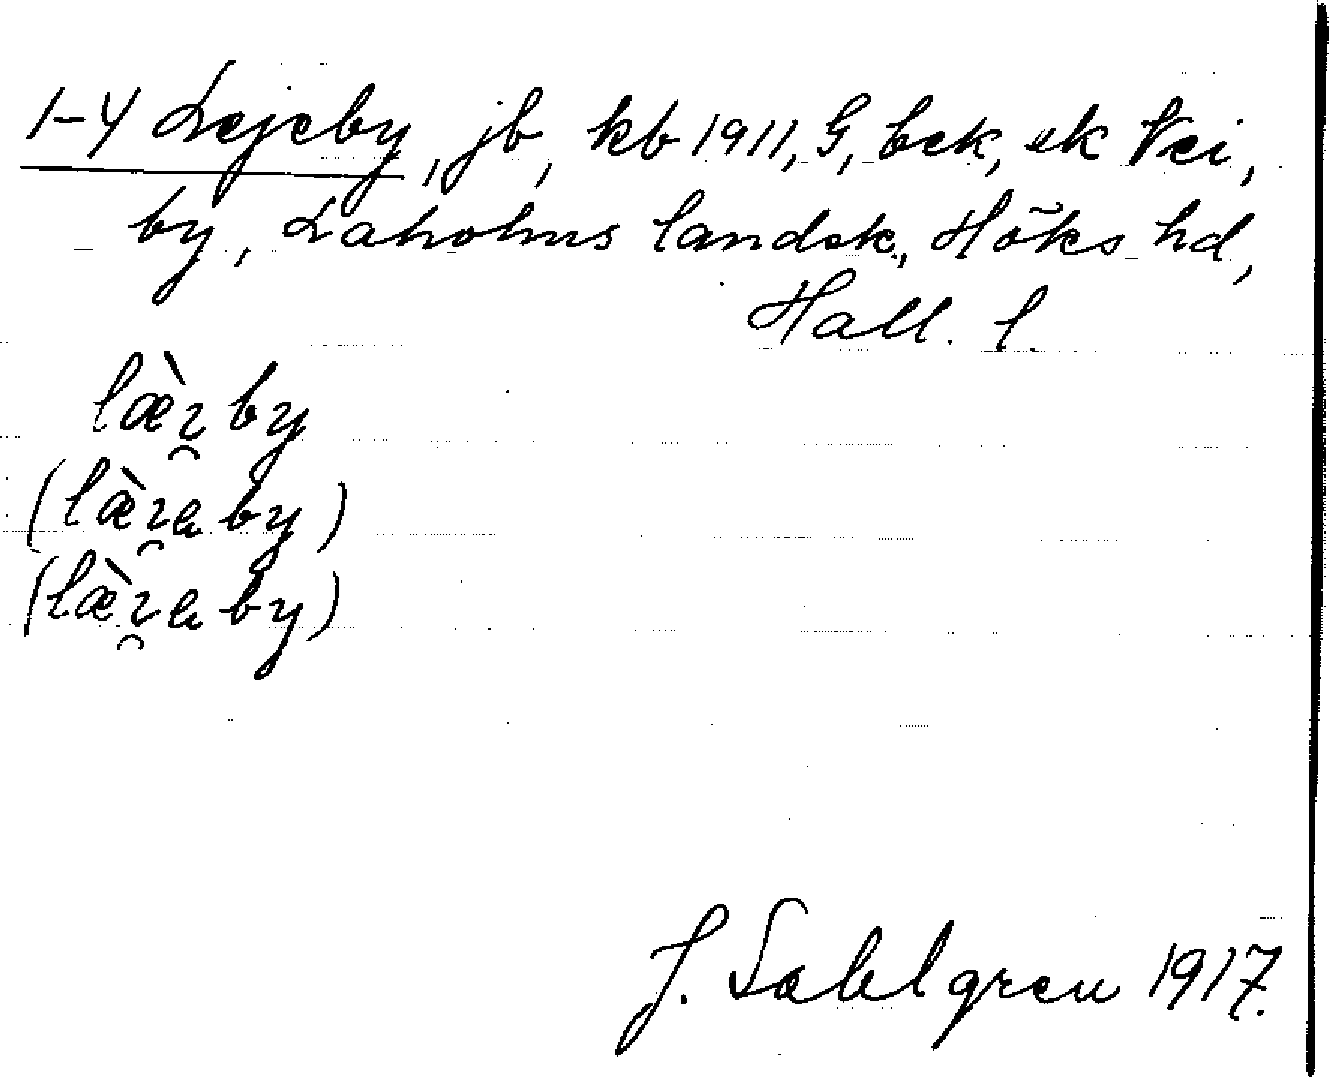 1-4 Lejeby, jb, kb 1911, G, bek, ek Vei,
by, Laholms landsk, Höks hd,
Hall. l.
læ̀ı̯by
(læ̀ı̯aby)
(læ̀ı̯aby)
J. Sahlgren 1917.